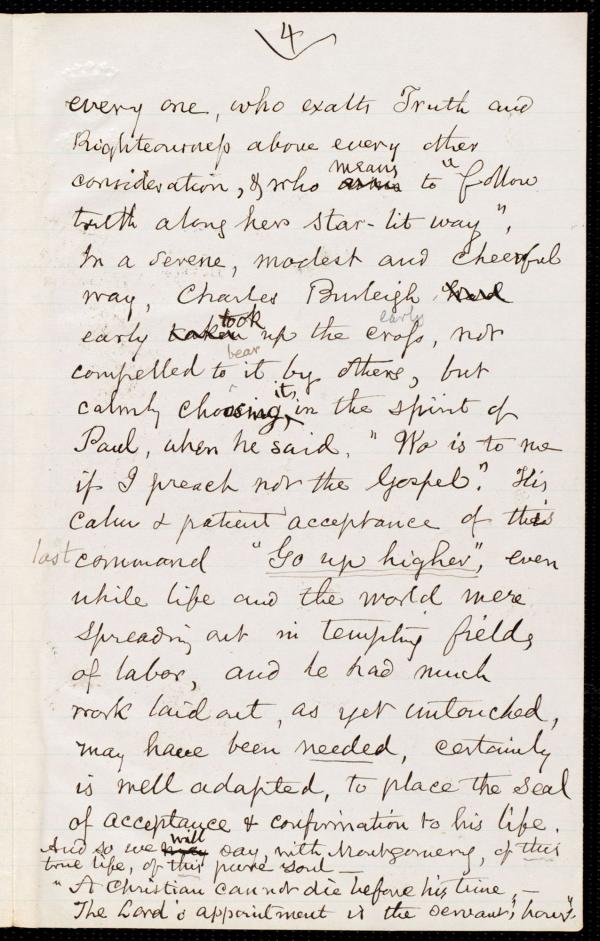 4
every one, who exalts Truth and
Righteousness above every other
consideration, & who means to "follow
truth along her star-lit way",
In a serene, modest and cheerful
way, Charles Burleigh had
early taken took up the cross, early not
compelled to bear it by others, but
calmly choosing it, in the spirit of
Paul, when he said, "Wo is to me
if I preach not the Gospel". His
calm & patient acceptance of this
last command "Go up higher", even
while life and the world were
spreading out in tempting fields
of labor, and he had much
work laid out, as yet untouched,
may have been needed, certainly
is well adapted, to place the seal
of acceptance & confirmation to his life.
And so we will say, with Montgomery, of this
true life, of this pure soul —
"A Christian cannot die before his time, —
The Lord's appointment is the servant's hour".